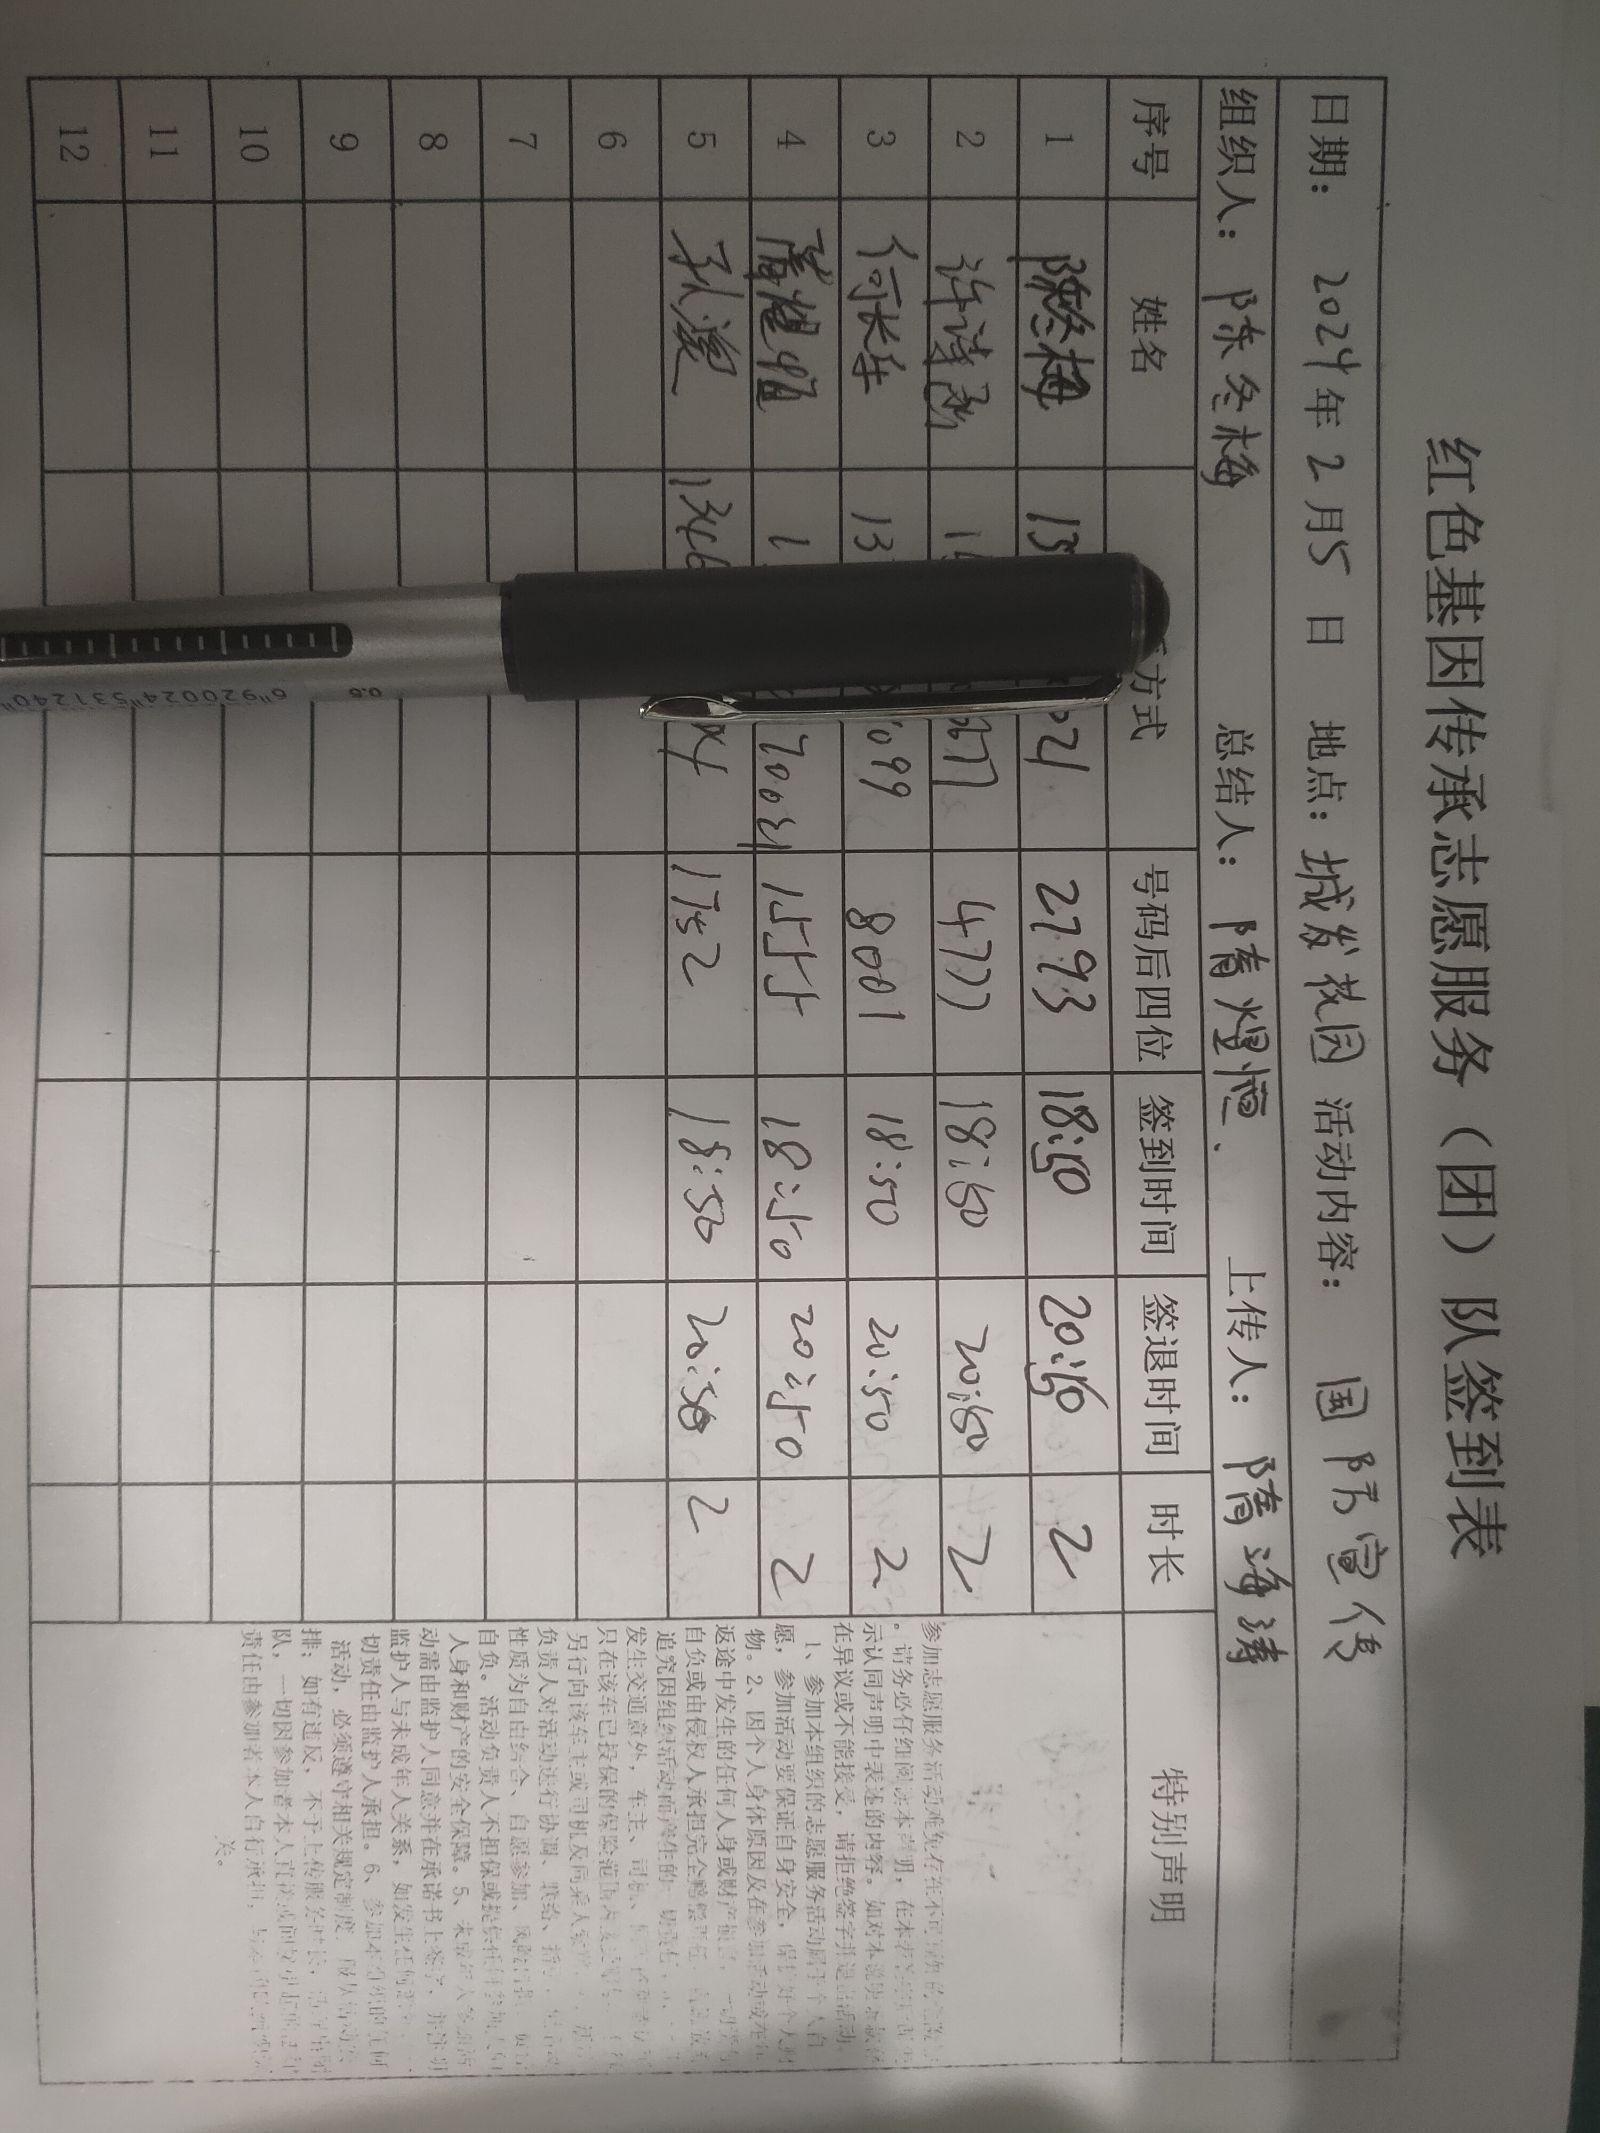 红色基因传承志愿服务（团）队签到表
日期： 2024年2月5日 地点：城发花园 活动内容： 国防宣传
组织人： 陈冬梅 总结人：隋煜恒. 上传人： 隋海涛
序号 姓名 方式 号码后四位 签到时间 签退时间 时长 特别声明
1 陈冬梅 2793 18:50 20:50 2
2 4777 18:50 20:50 2
3 何长年 8001 18:50 20:50 2
4 隋煜恒 1555 18:50 20:50 2
5 孙滢 1752 18:50 20:50 2
6
7
8
9
10
11
12
。请务必仔细阅读本声明，在本
示认同声明中表述的内容。如对本说明
在异议或不能接受，请拒绝签字并退出活动。
1、参加本组织的志愿服务活动属于个人自
愿，参加活动要保证自身安全，保护好个人财
物。2、因个人身体原因及在参加活动或在
返途中发生的任何人身或财产
自负或由侵权人承担完全赔偿
追究因组织活动而产生的一切责任
发生交通意外，车主、司机、
只在该车已投保的保险范围内
另行向该车主或司机及同乘人
负责人对活动进行协调、联络、
性质为自由结合、自愿参加、风险
自负。活动负责人不担保或提供任何参加人员
人身和财产的安全保障。5、未成年人参加活
动需由监护人同意并在承诺书上签字，并注明
监护人与未成年人关系，如发生任何意外，一
切责任由监护人承担。6、参加本组织的任何
活动，必须遵守相关规定制度，服从活动安
排；如有违反，不予上传服务时长，
队，一切因参加者本人直接或间接引起的
责任由参加者本人自行承担，与本组织
关。
0.5
6"920024"531240"